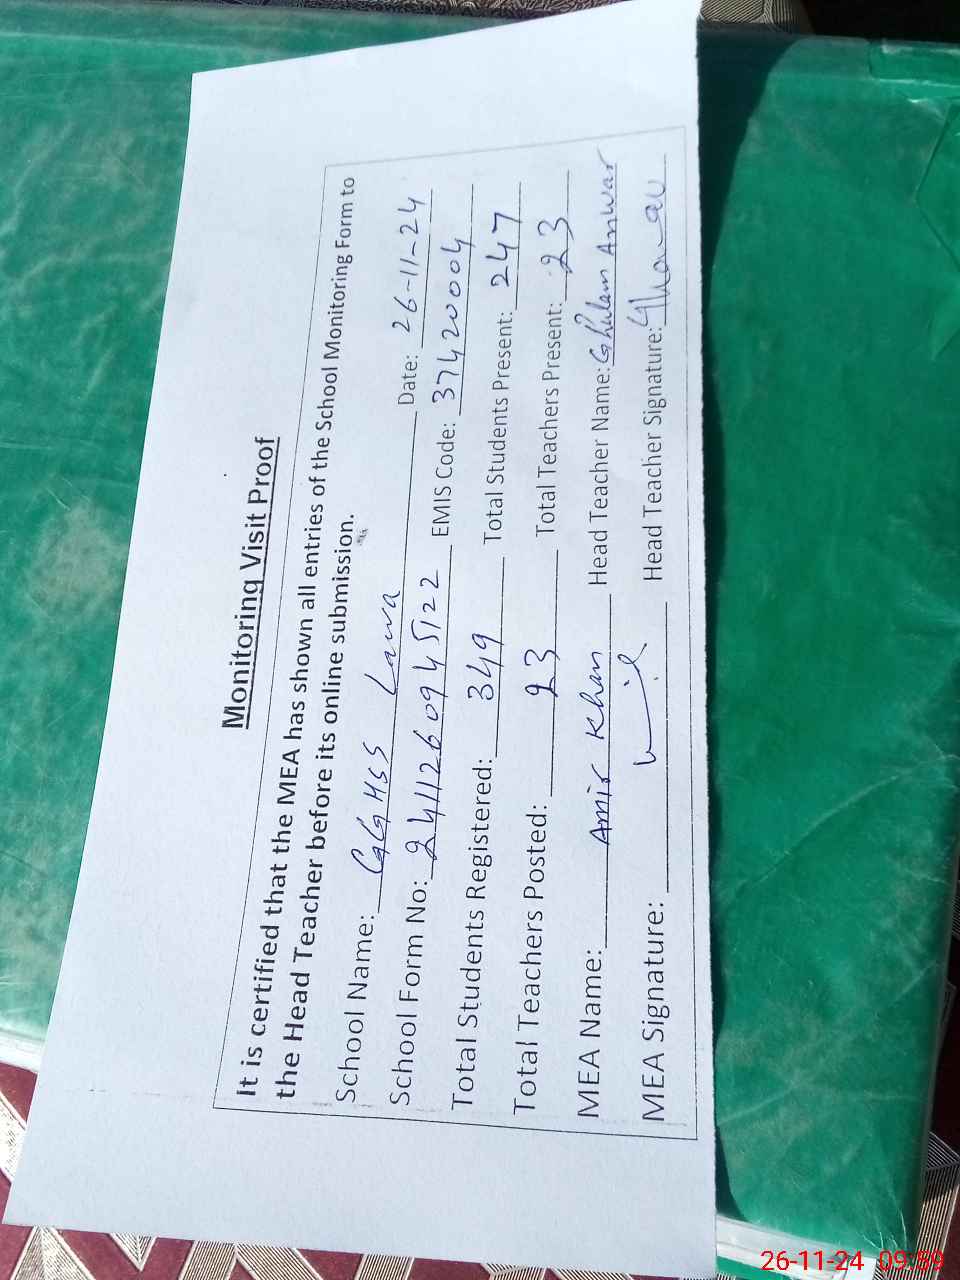 Monitoring Visit Proof
It is certified that the MEA has shown all entries of the School Monitoring Form to
the Head Teacher before its online submission.
School Name: GGHSS Lawa Date: 26-11-24
School Form No: 2411260945122 EMIS Code: 37420004
Total Students Registered: 349 Total Students Present: 247
Total Teachers Posted: 23 Total Teachers Present: 23
MEA Name: Amir Khan Head Teacher Name: Ghulam Anwar
MEA Signature: Head Teacher Signature:
26-11-24 09:59